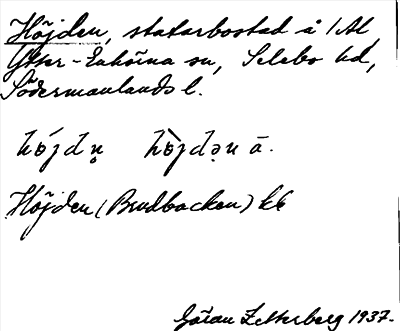 Höjden, statarbostad å 1 Al,
Ytter-Enhörna sn, Selebo hd,
Södermanlands l.
hö́jdn̥ hö̀jdən ā.
Höjden (Brudbacken) kk
Göran Zetterberg 1937.